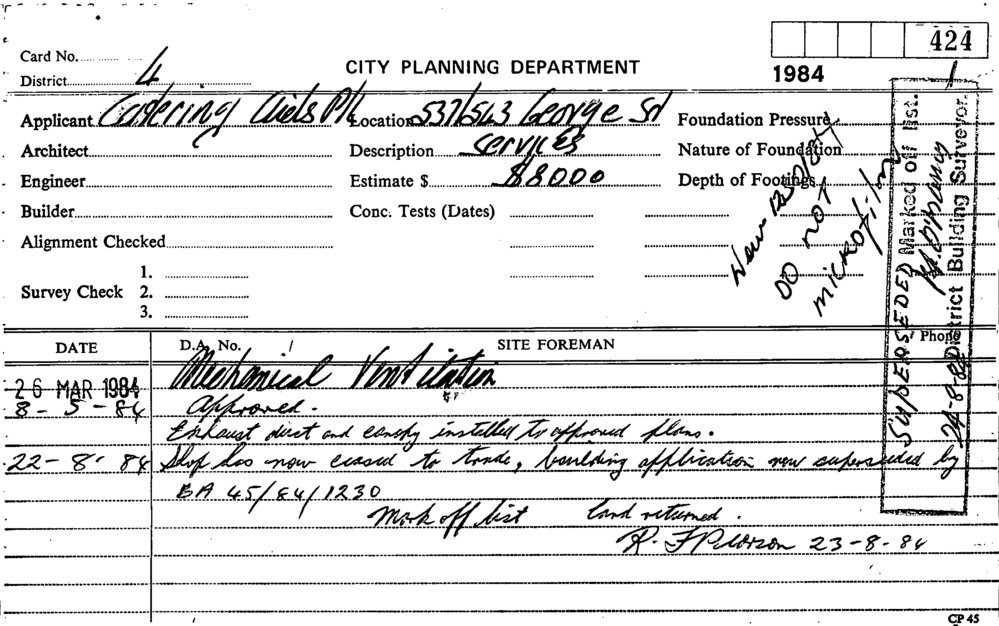 424
Card No.
District 4
CITY PLANNING DEPARTMENT
1984
Applicant Catering Aids P/L
Location 537/543 George St
Foundation Pressure
Architect
Description Services
Nature of Foundation
Engineer
Estimate $ $8000
Depth of Footings
Builder
Conc. Tests (Dates)
Alignment Checked
Survey Check
1.
2.
3.
New BA
DO NOT
microfilm
SUPERSEDED Marked off list.
District Building Surveyor.
24-8-84
DATE
D.A. No. /
SITE FOREMAN
Phone
26 MAR 1984
Mechanical Ventilation
8-5-84
Approved.
Exhaust duct and canopy installed to approved plans.
22-8-84
Shop has now ceased to trade, building application now superseded by
BA 45/84/1230
Mark off list
Card returned.
R. F Pearson 23-8-84
CP 45